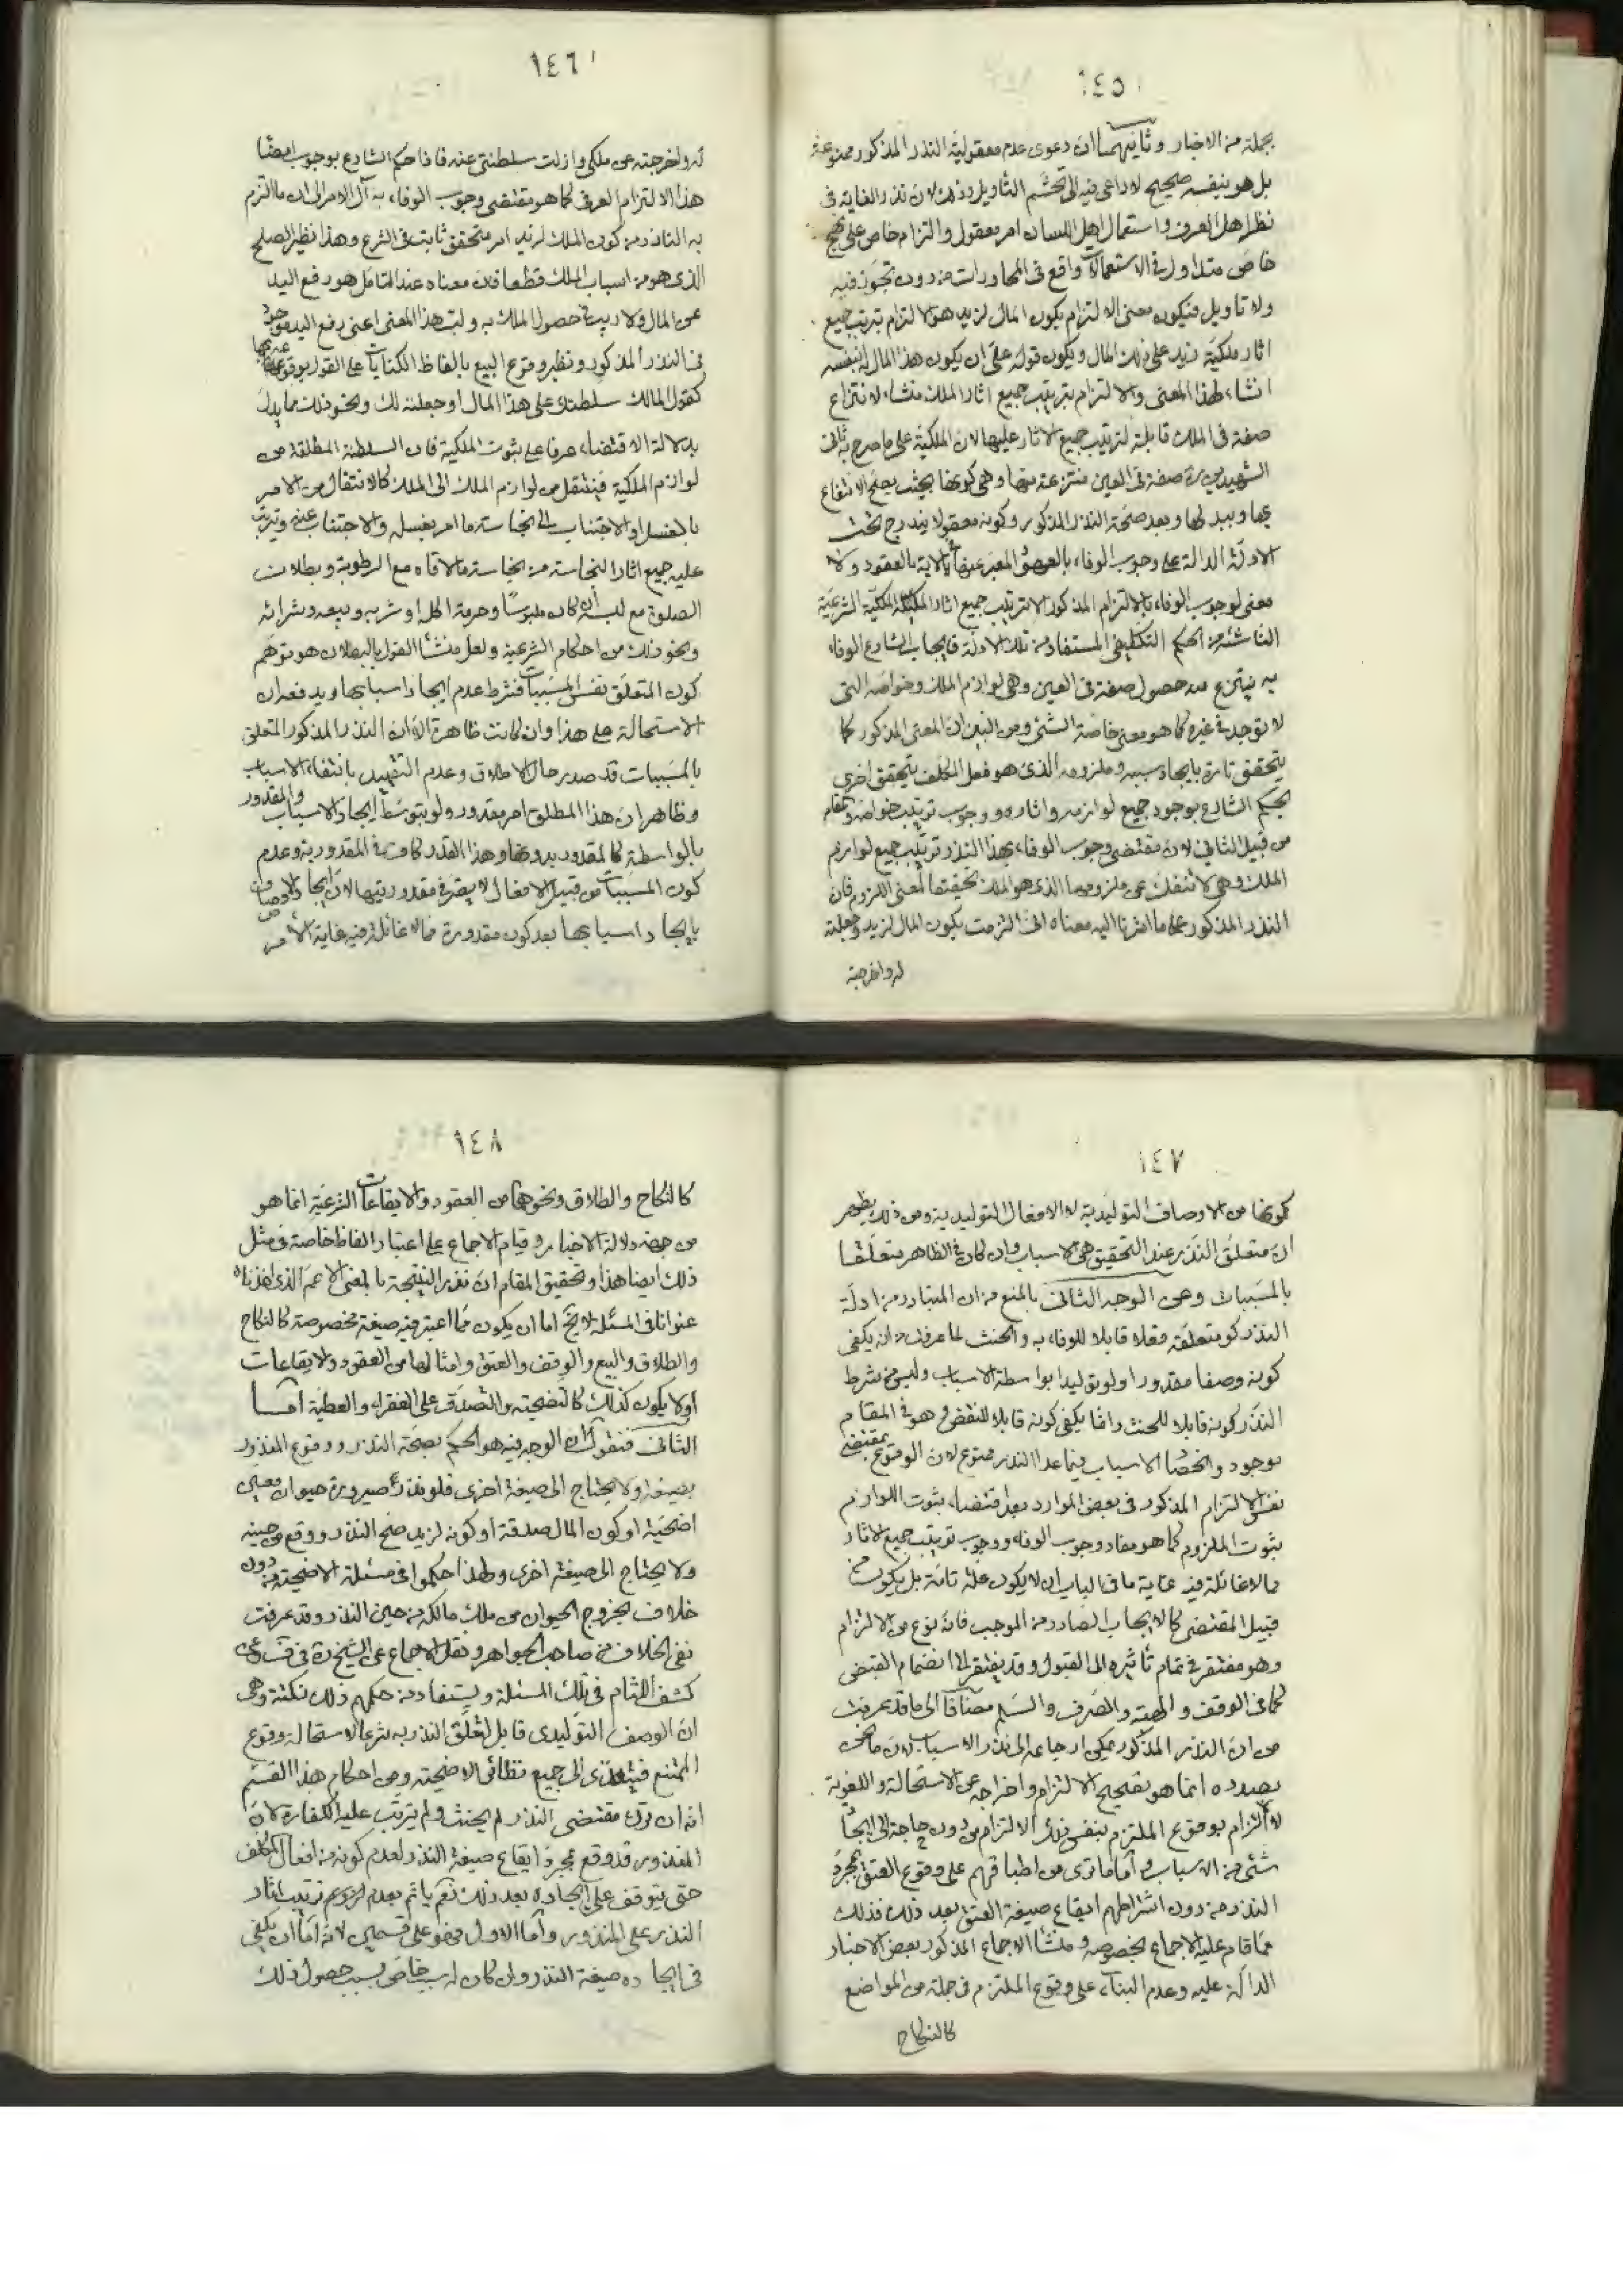 ١٤٥
بجملة من الاخبار وثانيهما ان دعوى عدم معقولية النذر المذكور ممنوعة
بل هو بنفسه صحيح لا داعى فيه الى تجشم التاويل وذلك لان نذر الغاية فى
نظر اهل العرف واستعمال اهل اللسان امر معقول والتزام خاص على نهج
خاص متداول فى الاستعمالات واقع فى المحاورات من دون تجوز فيه
ولا تاويل فيكون معنى الالتزام بكون المال لزيد هو الالتزام بترتيب جميع
اثار ملكية زيد على ذلك المال ويكون قوله على ان يكون هذا المال له بنفسه
انشاء لهذا المعنى والالتزام بترتيب جميع اثار الملك منشاء لانتزاع
صفة فى الملك قابلة لترتيب جميع الاثار عليها لان الملكية على ما صرح به ثانى
الشهيدين ره صفة فى العين منتزعة منها وهى كونها بحيث يصلح الانتفاع
بها وببدلها وبعد صحة النذر المذكور وكونه معقولا يندرج تحت
الادلة الدالة على وجوب الوفاء بالعهود المعبر عنها فى الاية بالعقود ولا
معنى لوجوب الوفاء بالالتزام المذكور الا ترتيب جميع اثار الملكية الشرعية
الناشئة من الحكم التكليفى المستفاد من تلك الادلة فايجاب الشارع الوفاء
به ينتزع منه حصول صفة فى العين وهى لوازم الملك وخواصه التى
لا توجد فى غيره كما هو معنى خاصة الشئ ومن البين ان المعنى المذكور كما
يتحقق تارة بايجاد سببه وملزومه الذى هو فعل المكلف يتحقق اخرى
بحكم الشارع بوجود جميع لوازمه واثاره ووجوب ترتيب خواصه والمقام
من قبيل الثانى لان مقتضى وجوب الوفاء بهذا النذر ترتيب جميع لوازم
الملك وهى لا تنفك عن ملزومها الذى هو الملك تحقيقا لمعنى اللزوم فان
النذر المذكور على ما اشرنا اليه معناه انى التزمت بكون المال لزيد وجعلته
له واخرجته
١٤٦
له واخرجته عن ملكى وازلت سلطنتى عنه فاذا حكم الشارع بوجوب امضاء
هذا الالتزام العرفى كما هو مقتضى وجوب الوفاء به آل الامر الى ان ما التزم
به الناذر من كون الملك لزيد امر متحقق ثابت فى الشرع وهذا نظير الصلح
الذى هو من اسباب الملك قطعا فان معناه عند التامل هو رفع اليد
عن المال ولا ريب فى حصول الملك به وليت هذا المعنى اعنى رفع اليد موجود
فى النذر المذكور ونظير وقوع البيع بالفاظ الكنايات على القول بوقوعه بها
كقول المالك سلطتك على هذا المال او جعلته لك ونحو ذلك مما يدل
بدلالة الاقتضاء عرفا على ثبوت الملكية فان السلطنة المطلقة من
لوازم الملكية فينتقل من لوازم الملك الى الملك كالانتقال من الامر
بالغسل او الاجتناب الى نجاسة ما امر بغسله والاجتناب عنه وترتب
عليه جميع اثار النجاسة من نجاسة ملاقاه مع الرطوبة وبطلان
الصلوة مع لبسه ان كان ملبوسا وحرمة اكله او شربه وبيعه وشرائه
ونحو ذلك من احكام الشرعية ولعل منشأ القول بالبطلان هو توهم
كون المتعلق نفس المسببات فشرط عدم ايجاد اسبابها ويدفعه ان
الاستحالة على هذا وان كانت ظاهرة الا ان النذر المذكور المتعلق
بالمسببات قد صدر حال الاطلاق وعدم التقييد بانتفاء الاسباب
وظاهر ان هذا المطلق امر مقدور ولو بتوسط ايجاد الاسباب والمقدور
بالواسطة كالمقدور بدونها وهذا القدر كاف فى المقدورية وعدم
كون المسببات من قبيل الافعال لا يضر فى مقدوريتها لان ايجاد الاوصاف
بايجاد اسبابها بعد كون مقدورة مما لا غائلة فيه غاية الامر
١٤٧
كونها من الاوصاف التوليدية لا الافعال التوليدية ومن ذلك يظهر
ان متعلق النذر عند التحقيق هى الاسباب وان كان فى الظاهر متعلقا
بالمسببات وعن الوجه الثانى بالمنع من ان المتبادر من ادلة
النذر كون متعلقه فعلا قابلا للوفاء به والحنث لما عرفت من ان يكفى
كونه وصفا مقدورا ولو توليدا بواسطة الاسباب وليس من شرط
النذر كونه قابلا للحنث وانما يكفى كونه قابلا للنقض وهو فى المقام
موجود وانحصار الاسباب فيما عدا النذر ممنوع لان الوقوع بمقتضى
نفس الالتزام المذكور فى بعض الموارد بعد اقتضاء ثبوت اللوازم
ثبوت الملزوم كما هو مفاد وجوب الوفاء ووجوب ترتيب جميع الاثار
مما لا غائلة فيه غاية ما فى الباب ان لا يكون علة تامة بل يكون من
قبيل المقتضى كالايجاب الصادر من الموجب فانه نوع من الالتزام
وهو مفتقر فى تمام تأثيره الى القبول وقد يفتقر الى انضمام القبض
كما فى الوقف والهبة والصرف والسلم مضافا الى ما قد عرفت
من ان النذر المذكور يمكن ارجاعه الى نذر الاسباب لان ما نحن
بصدده انما هو تصحيح الالتزام واخراجه عن الاستحالة واللغوية
لا الالتزام بوقوع الملتزم بنفس ذلك الالتزام من دون حاجة الى ايجاد
شئ من الاسباب واما ما ترى من اطباقهم على وقوع العتق بمجرد
النذر من دون اشتراطهم ايقاع صيغة العتق بعد ذلك فذلك
مما قام عليه الاجماع بخصوصه ومنشأ الاجماع المذكور بعض الاخبار
الدالة عليه وعدم البناء على وقوع الملتزم فى جملة من المواضع
كالنكاح
١٤٨
كالنكاح والطلاق ونحوهما من العقود والايقاعات الشرعية انما هو
من جهة دلالة الاخبار وقيام الاجماع على اعتبار الفاظ خاصة فى مثل
ذلك ايضا هذا وتحقيق المقام ان نذر النتيجة بالمعنى الاعم الذى اخذناه
عنوانا فى المسئلة لا يخ اما ان يكون مما اعتبر فيه صيغة مخصوصة كالنكاح
والطلاق والبيع والوقف والعتق وامثالها من العقود والايقاعات
او لا يكون كذلك كالتضحية والتصدق على الفقراء والعطية اما
الثانى فنقول ان الوجه فيه هو الحكم بصحة النذر ووقوع المنذور
بصيغته ولا يحتاج الى صيغة اخرى فلو نذر صيرورة حيوان معين
اضحية او كون المال صدقة او كونه لزيد صح النذر ووقع من حينه
ولا يحتاج الى صيغة اخرى ولهذا حكموا فى مسئلة الاضحية من دون
خلاف بخروج الحيوان من ملك مالكه من حين النذر وقد عرفت
نفى الخلاف من صاحب الجواهر ونقل الاجماع عن الشيخ ره فى ف وعن
كشف اللثام فى تلك المسئلة ويستفاد من حكمهم ذلك نكتة وهى
ان الوصف التوليدى قابل لتعلق النذر به شرعا لاستحالة وقوع
الممتنع فيتعدى الى جميع نظائر الاضحية ومن احكام هذا القسم
انه ان ترك مقتضى النذر لم يحنث ولم يترتب عليه الكفارة لان
المنذور قد وقع بمجرد ايقاع صيغة النذر لعدم كونه من افعال المكلف
حتى يتوقف على ايجاده بعد ذلك نعم ياثم بعدم ترتيب اثار
النذر على المنذور واما الاول فهو على قسمين لانه اما ان يكفى
فى ايجاده صيغة النذر وان كان له سبب خاص بسبب حصول ذلك